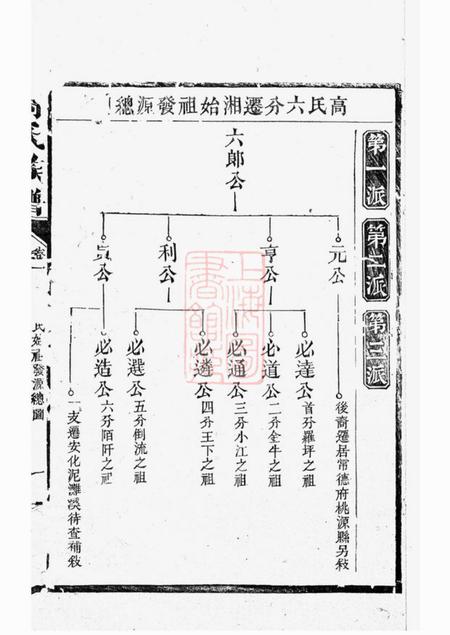 高氏六分遷湘始祖發源總
第一派
第二派
第三派
六郎公
元公
亨公
利公
貞公
後裔遷居常德府桃源縣另敘
必達公 首分羅坪之祖
必道公 二分全牛之祖
必通公 三分小江之祖
必遴公 四分王下之祖
必選公 五分倒流之祖
必造公 六分陌阡之祖
一支遷安化泥灘溪待查補敘
氏族譜
卷一
氏始祖發源總圖
上海圖書館藏